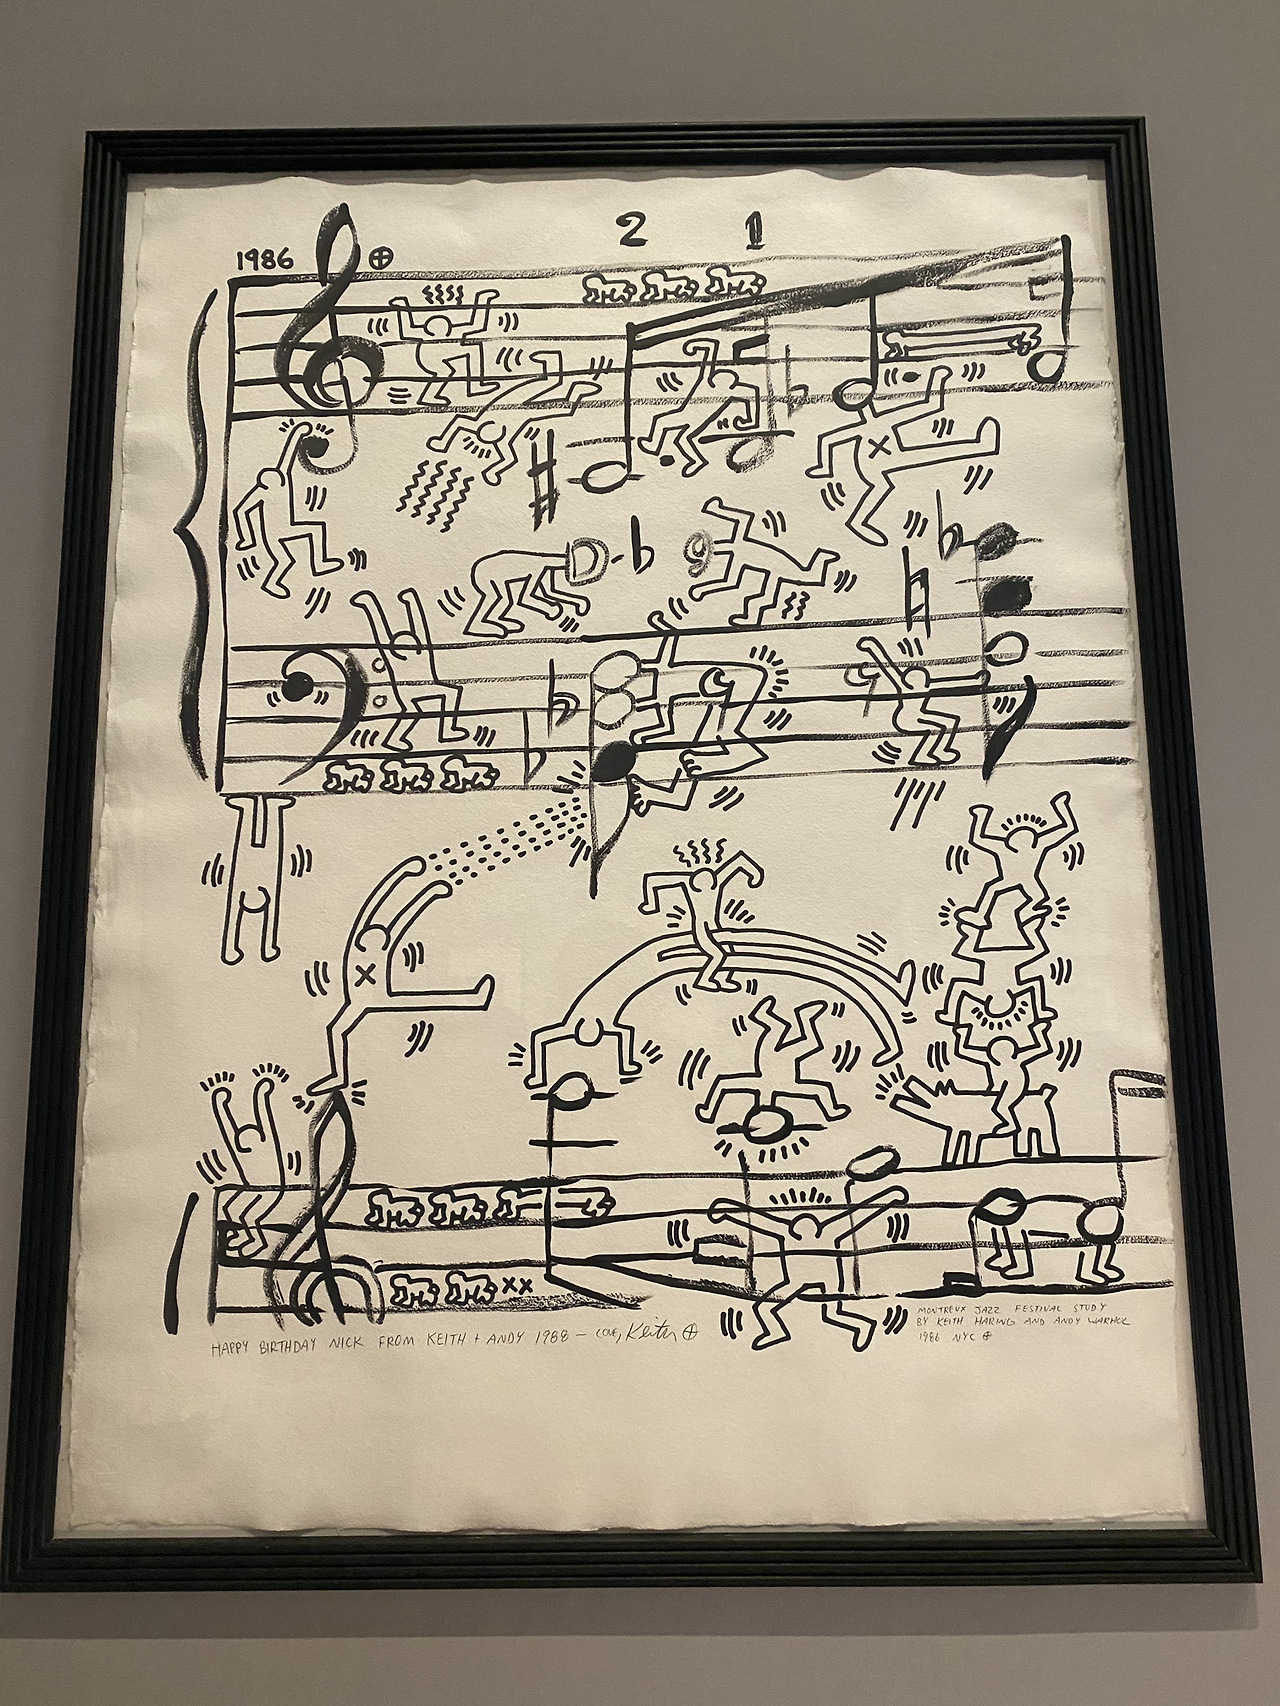 2 1
1986
D-b g
MONTREUX JAZZ FESTIVAL STUDY
BY KEITH HARING AND ANDY WARHOL
1986 NYC
HAPPY BIRTHDAY NICK FROM KEITH + ANDY 1988 – LOVE, Keith